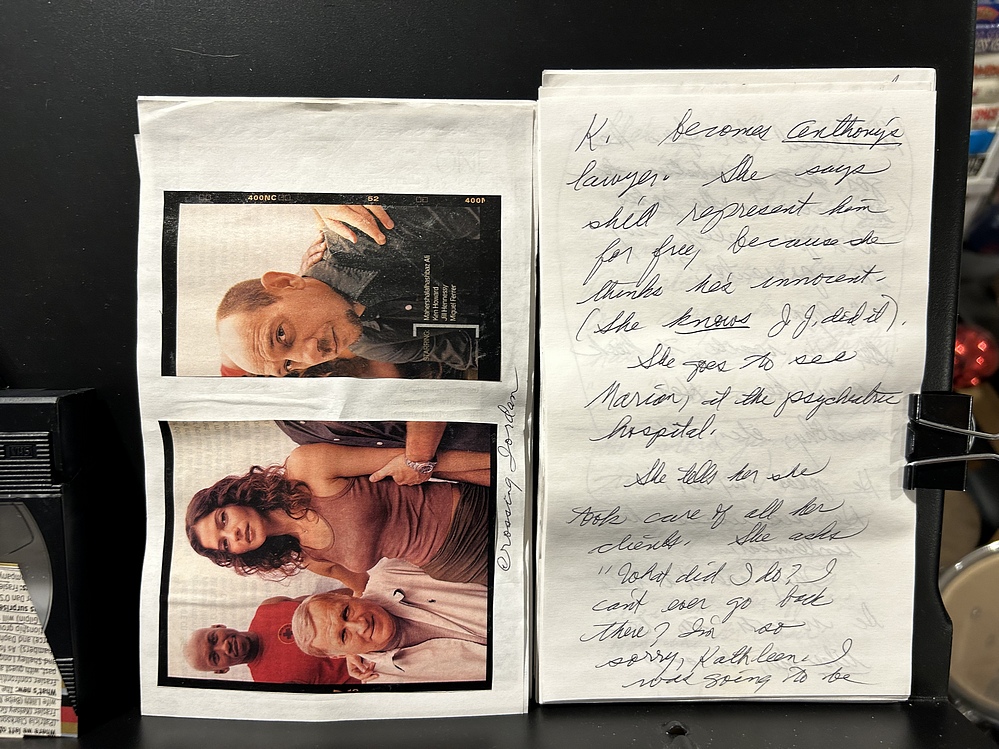 400NC
52
400N
STARRING:
Mahershalalhashbaz Ali
Ken Howard
Jill Hennessy
Miguel Ferrer
Crossing Jordan
K. becomes Anthony's
lawyer. She says
she'll represent him
for free, because she
thinks he's innocent.
(She knows J.J. did it).
She goes to see
Marion, at the psychiatric
hospital.
She tells her she
took care of all her
clients. She asks
"What did I do? I
can't ever go back
there? I'm so
sorry, Kathleen. I
was going to be